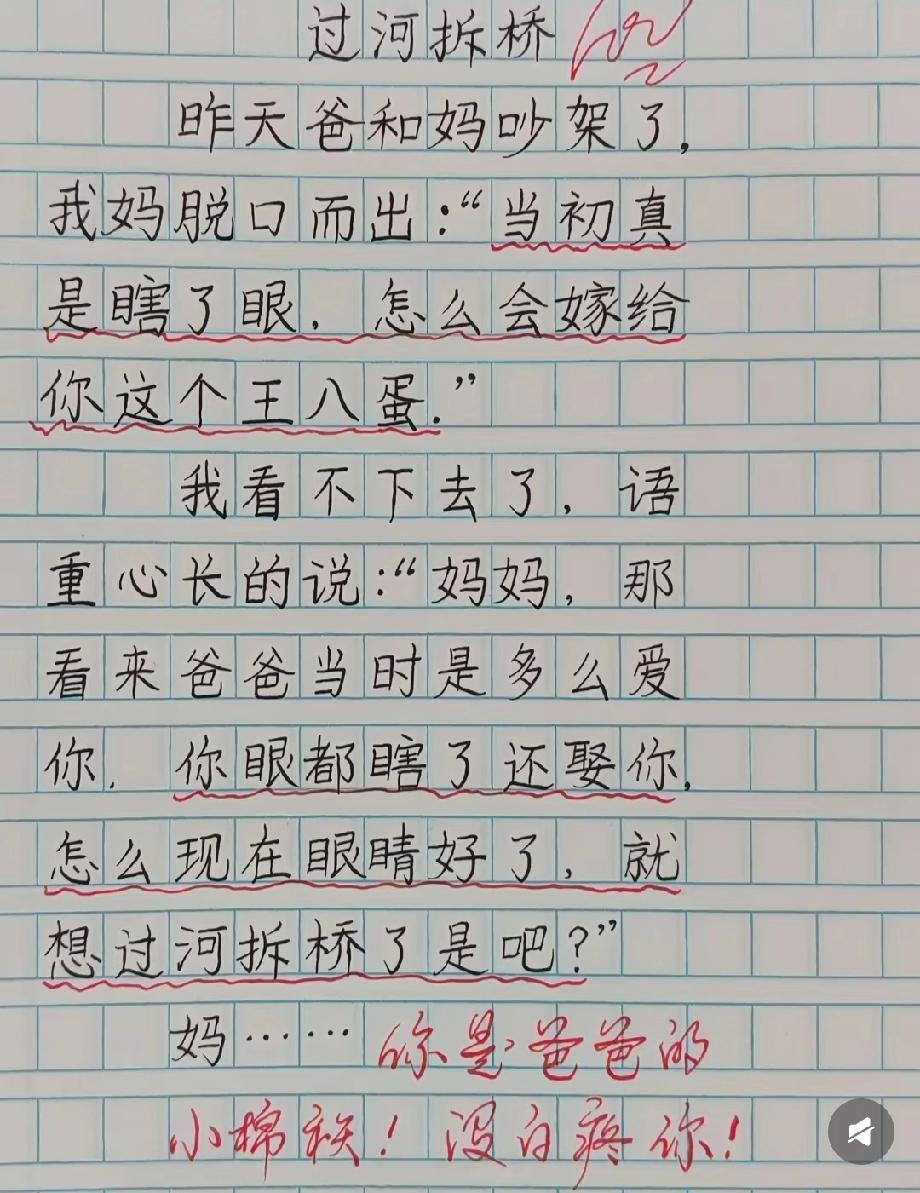 过河拆桥
昨天爸和妈吵架了,
我妈脱口而出:“当初真
是瞎了眼,怎么会嫁给
你这个王八蛋.”
我看不下去了,语
重心长的说:“妈妈,那
看来爸爸当时是多么爱
你,你眼都瞎了还娶你,
怎么现在眼睛好了,就
想过河拆桥了是吧?”
妈……你是爸爸的
小棉袄!没白疼你!